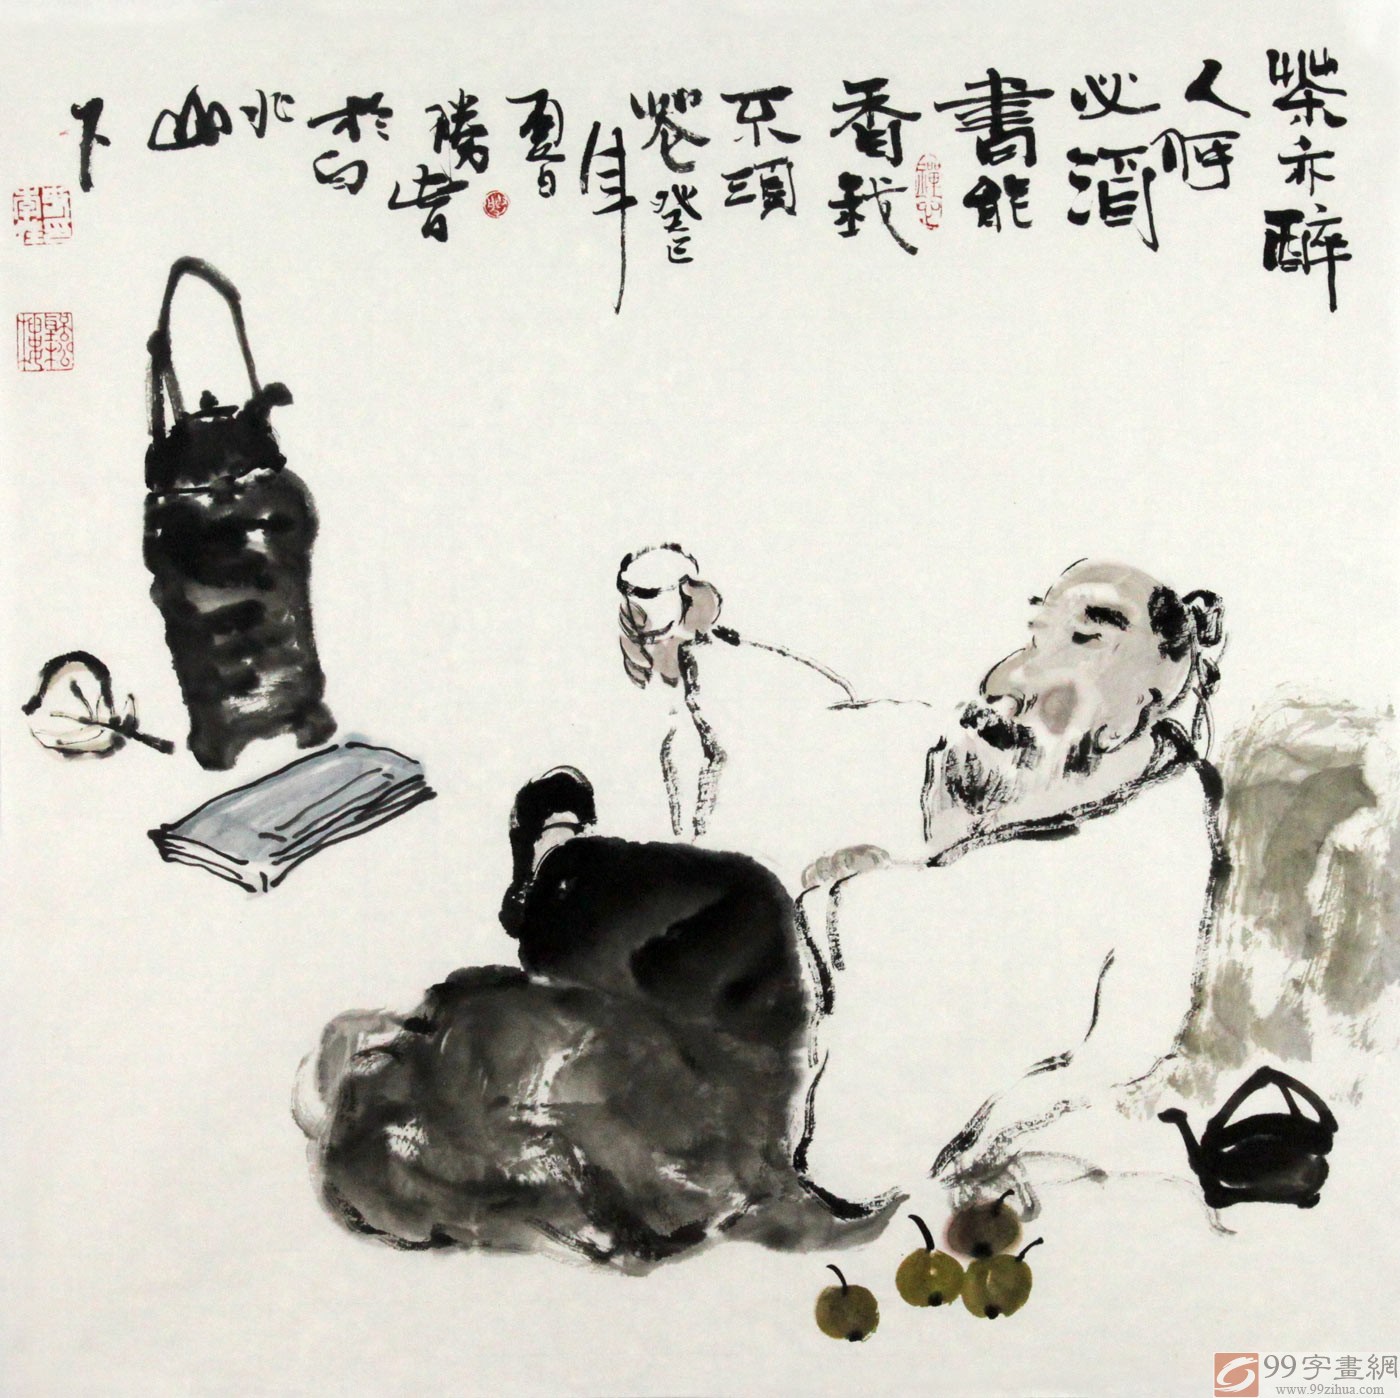 茶亦醉
人何
必酒
書能
香我
不須
花癸巳
年
夏日
勝
於白
兆
山
下
99字畫網
www.99zihua.com